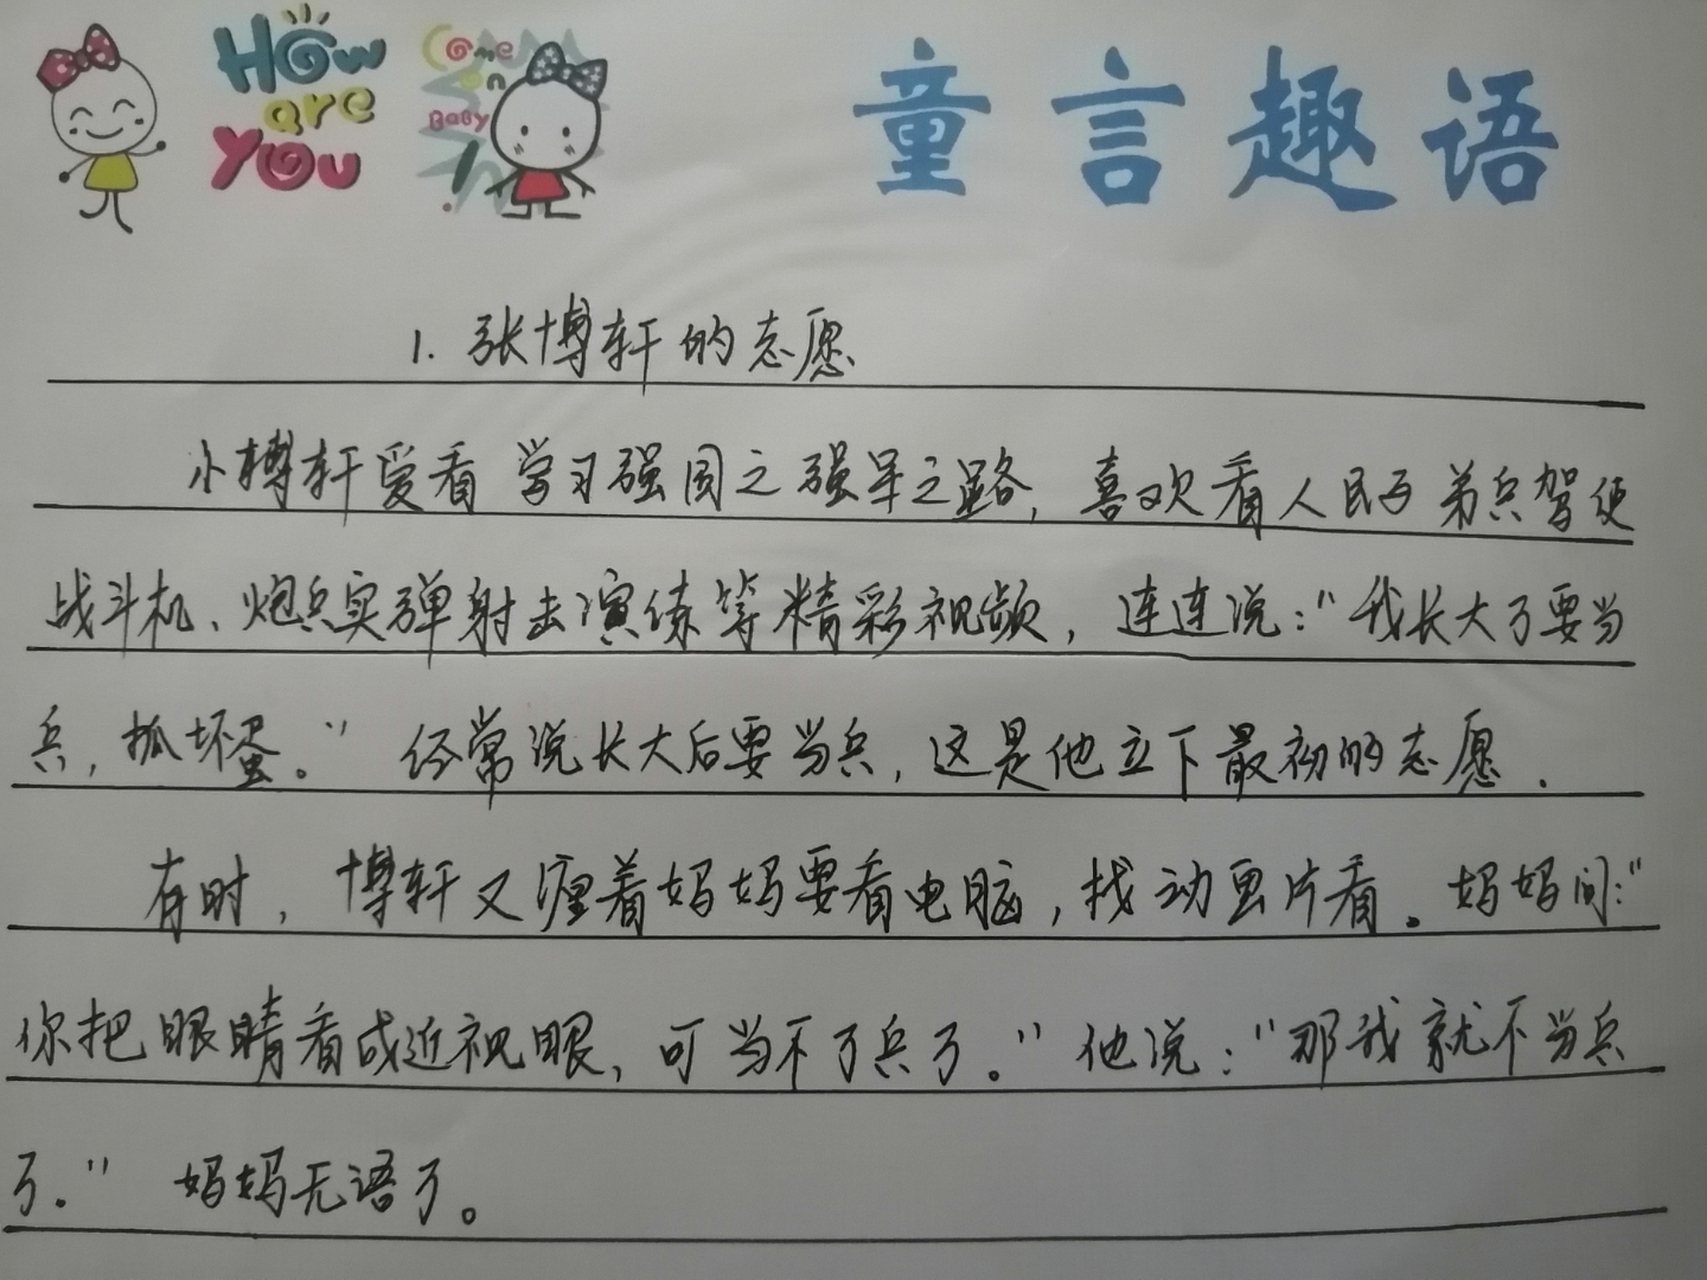 How are You
Come on Baby !
童言趣语
1. 张博轩的志愿
小博轩爱看 学习强国之强军之路, 喜欢看人民子弟兵驾使
战斗机、炮兵实弹射击演练等精彩视频, 连连说:"我长大了要当
兵, 抓坏蛋。" 经常说长大后要当兵, 这是他立下最初的志愿.
有时, 博轩又缠着妈妈要看电脑, 找动画片看。妈妈问:"
你把眼睛看成近视眼, 可当不了兵了。" 他说:"那我就不当兵
了。" 妈妈无语了。